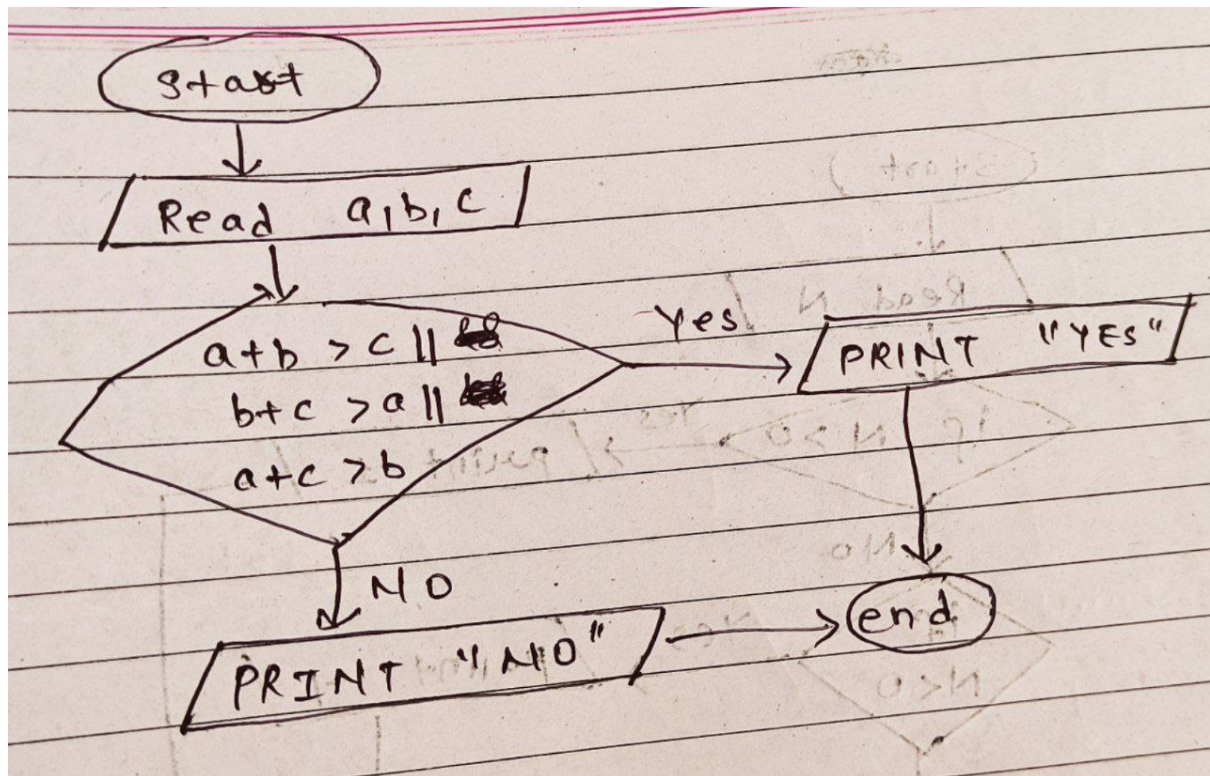 Start
Read a,b,c
a+b > c ||
b+c > a ||
a+c > b
Yes
PRINT "YES"
NO
PRINT "NO"
end